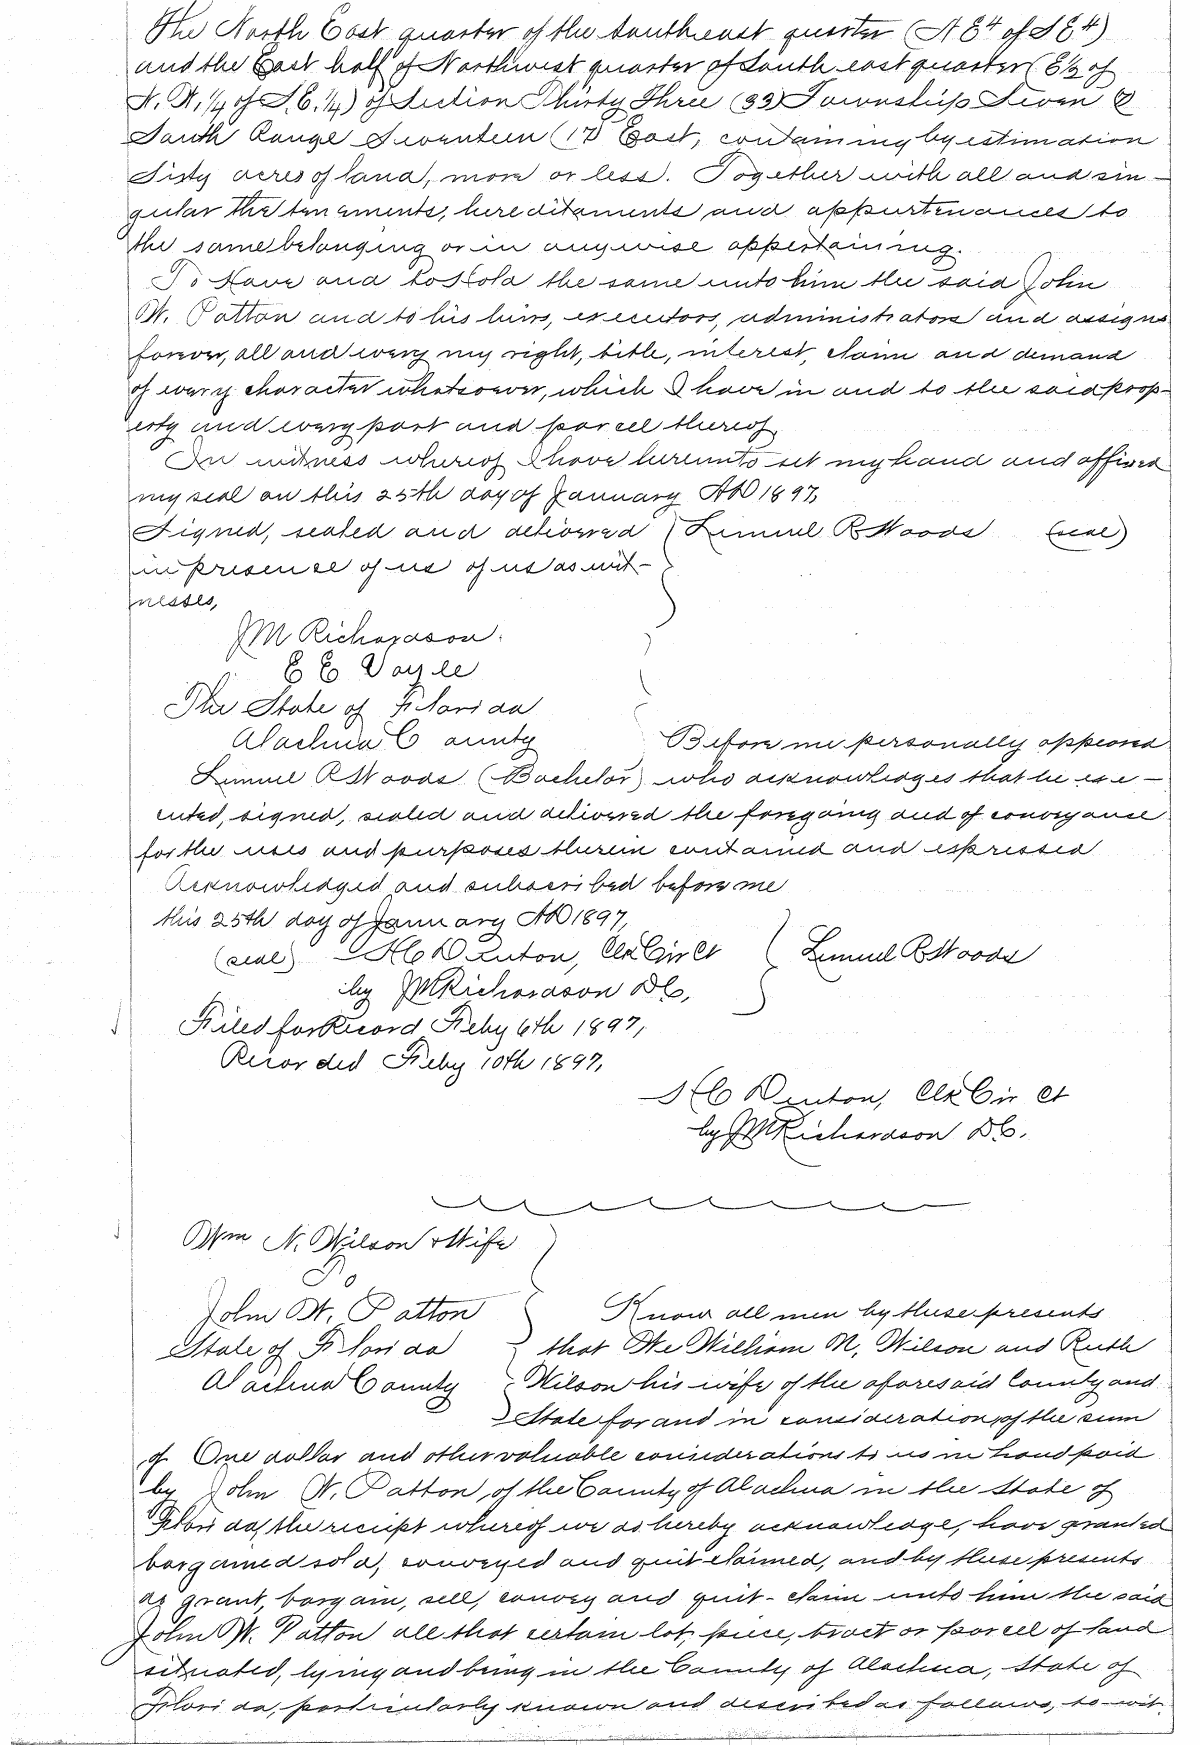 The North East quarter of the Southeast quarter (N E 4 of S E 4)
and the East half of Northwest quarter of South east quarter (E ½ of
N. W. ¼ of S. E. ¼) of Section Thirty Three (33) Township Seven (7)
South Range Seventeen (17) East, containing by estimation
Sixty acres of land, more or less. Together with all and sin-
gular the tenements, hereditaments and appurtenances to
the same belonging or in anywise appertaining.
To Have and to Hold the same unto him the said John
W. Patton and to his heirs, executors, administrators and assigns
forever, all and every my right, title, interest, claim and demand
of every character whatsoever, which I have in and to the said prop-
erty and every part and parcel thereof.
In witness whereof I have hereunto set my hand and affixed
my seal on this 25th day of January AD 1897,
Signed, sealed and delivered } Lemuel R Woods (seal)
in presence of us of us as wit-
nesses,
JM Richardson.
E E Voyle
The State of Florida
Alachua County Before me personally appeared
Lemuel R Woods (Bachelor) who acknowledges that he exe-
cuted, signed, sealed and delivered the foregoing and of conveyance
for the uses and purposes therein contained and expressed
Acknowledged and subscribed before me
this 25th day of January AD 1897,
(seal) H C Denton, Clk Cir Ct } Lemuel R Woods
by JM Richardson DC,
Filed for Record Feby 6th 1897,
Recorded Feby 10th 1897,
H C Denton, Clk Cir Ct
by JM Richardson DC.
Wm N. Wilson & Wife
To
John W. Patton Know all men by these presents
State of Florida that We William N. Wilson and Ruth
Alachua County Wilson his wife of the aforesaid County and
State for and in consideration of the sum
of One dollar and other valuable considerations to us in hand paid
by John W. Patton of the County of Alachua in the State of
Florida, the receipt whereof we do hereby acknowledge, have granted
bargained sold, conveyed and quit claimed, and by these presents
do grant, bargain, sell, convey and quit-claim unto him the said
John W. Patton all that certain lot, piece, tract or parcel of land
situated, lying and being in the County of Alachua, State of
Florida, particularly known and described as follows, to-wit,